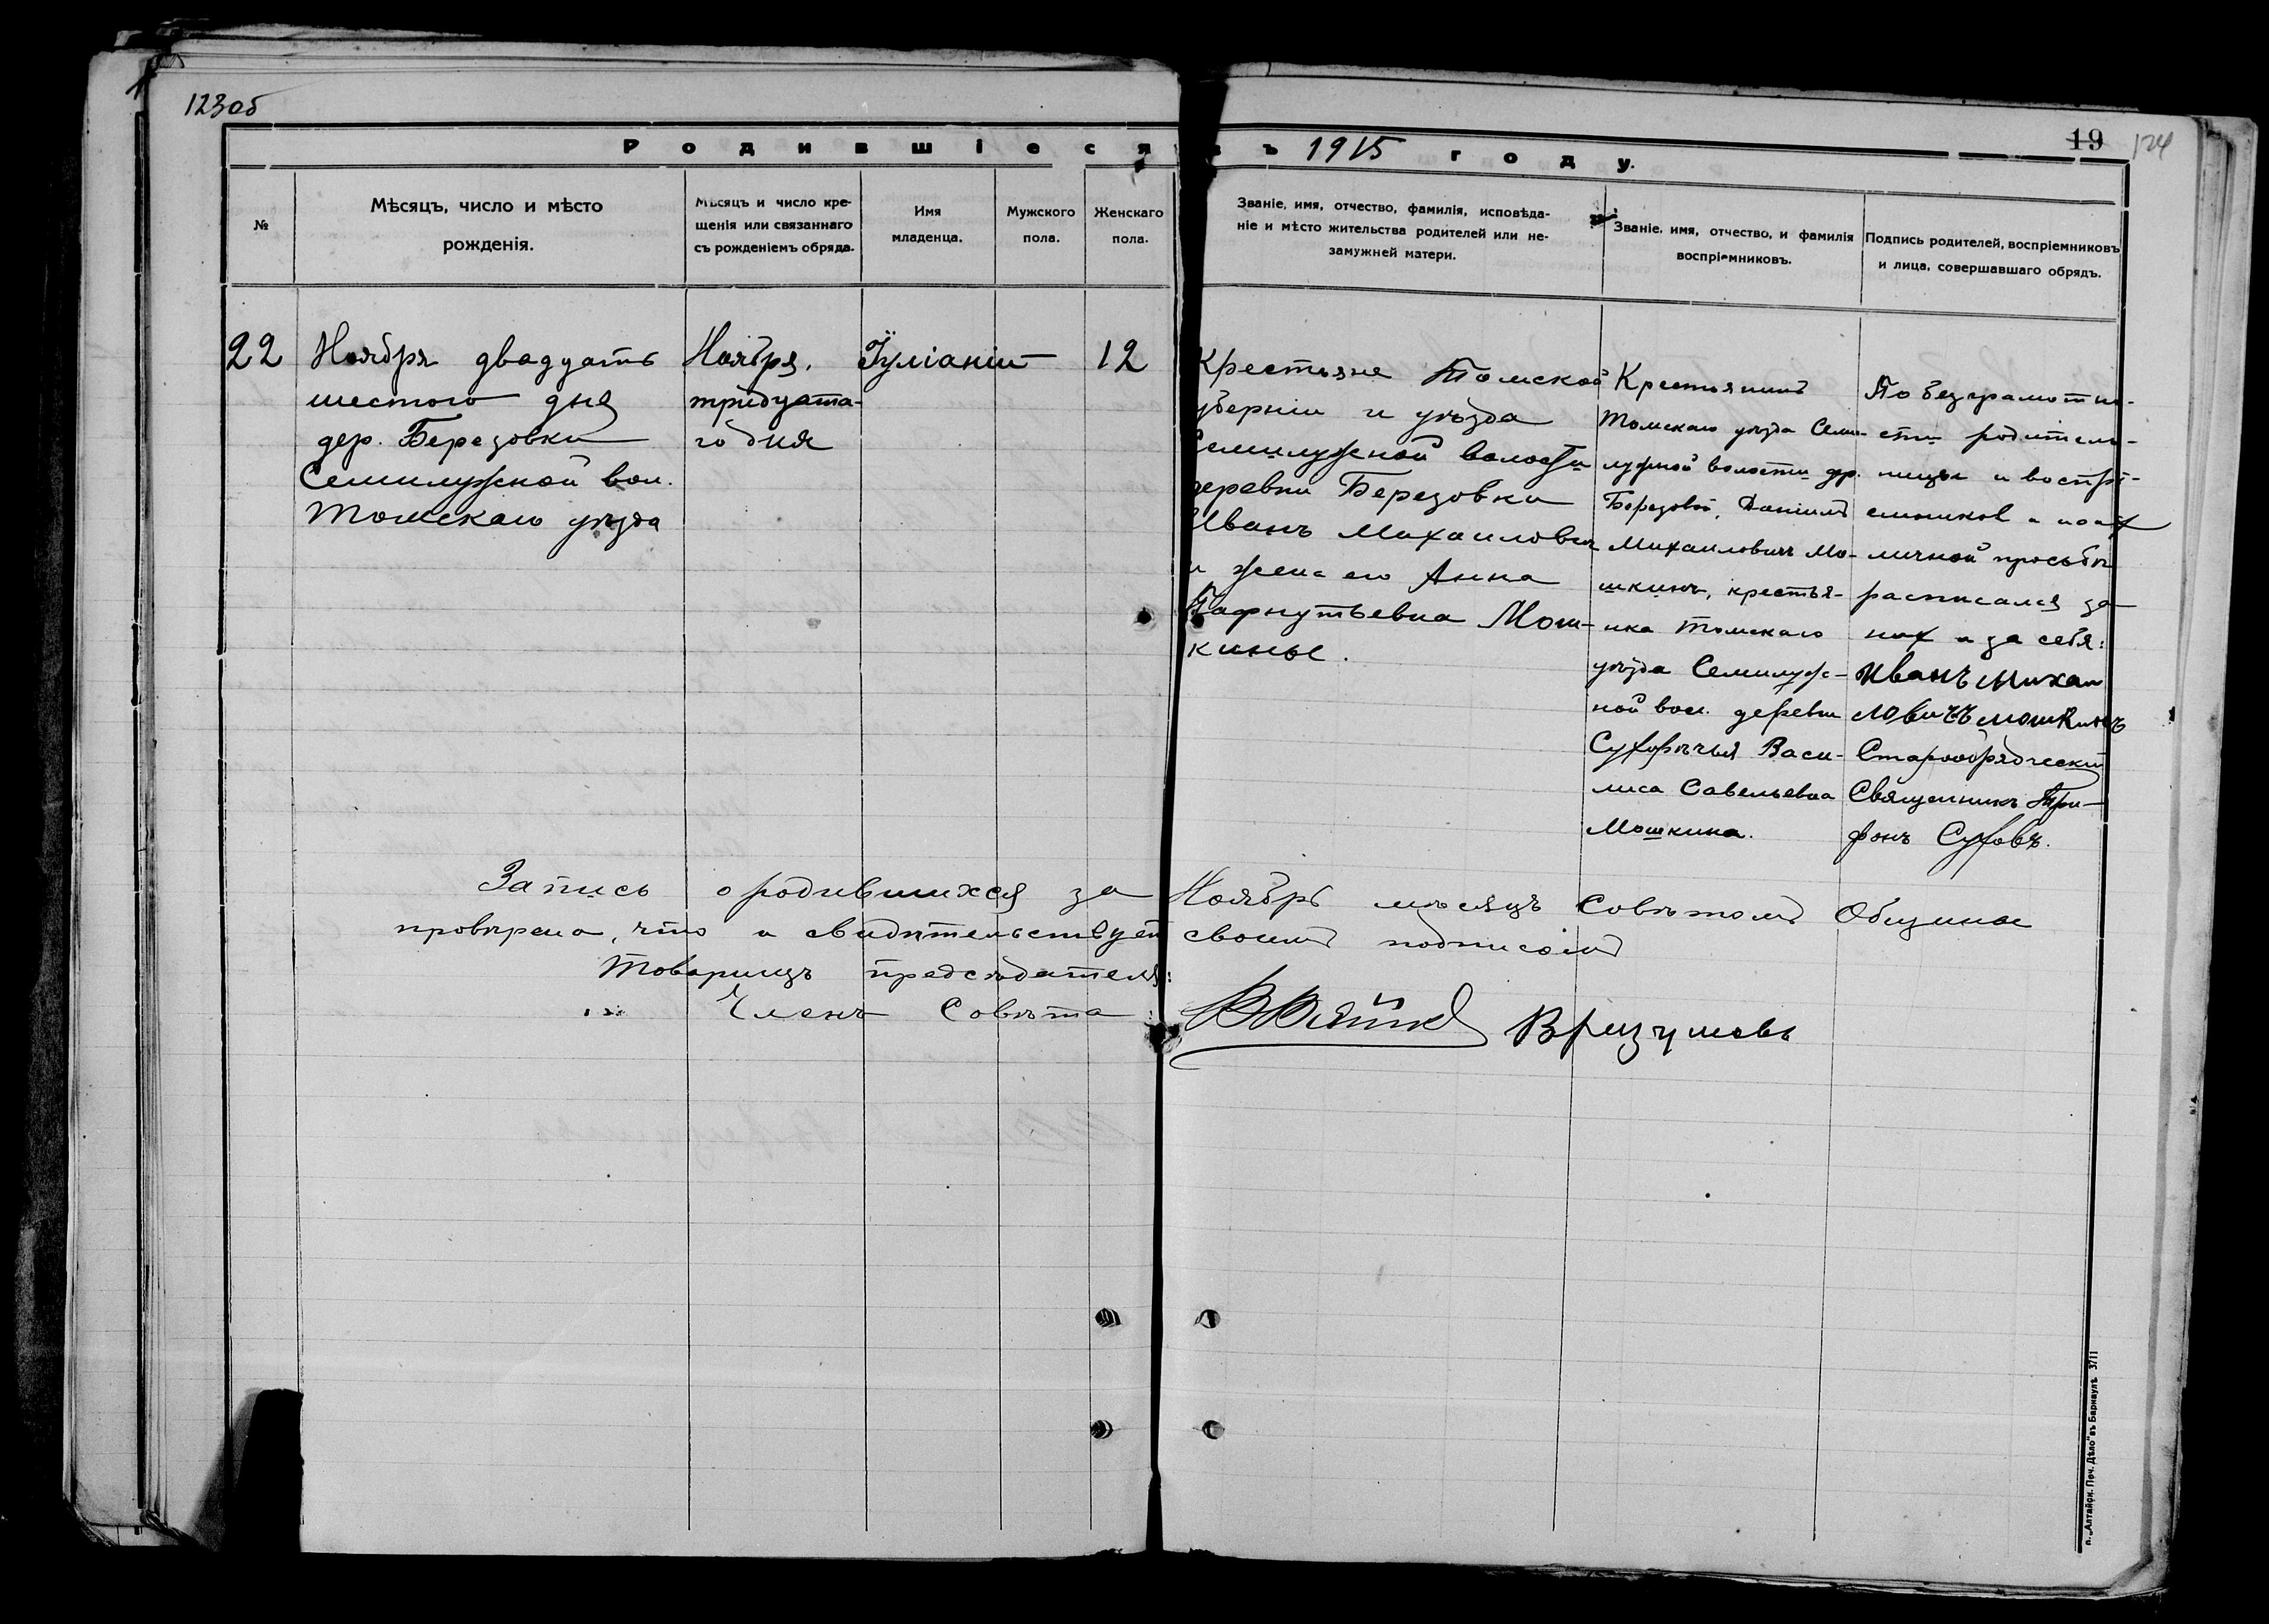 123об
19 124
Родившіеся въ 1915 году.
№
Мѣсяцъ, число и мѣсто
рожденія.
Мѣсяцъ и число кре-
щенія или связаннаго
съ рожденіемъ обряда.
Имя
младенца.
Мужского
пола.
Женскаго
пола.
Званіе, имя, отчество, фамилія, исповѣда-
ніе и мѣсто жительства родителей или не-
замужней матери.
Званіе, имя, отчество, и фамилія
воспріемниковъ.
Подпись родителей, воспріемниковъ
и лица, совершавшаго обрядъ.
22
Ноября двадцать
шестого дня
дер. Березовки
Семилужной вол.
Томскаго уѣзда
Ноября,
тридцата-
го дня
Іуліаніи
12
Крестьяне Томской
губерніи и уѣзда
Семилужной волости
деревни Березовки
Иванъ Михаиловичъ
и жена его Анна
Пафнутьевна Мош-
кины.
Крестьянинъ
Томскаго уѣзда Семи-
лужной волости др.
Березовой, Даніилъ
Михаиловичъ Мо-
шкинъ, крестья-
нка Томскаго
уѣзда Семилуж-
ной вол. деревни
Сухорѣчья Васи-
лиса Савельевна
Мошкина.
По безграмотно-
сти родитель-
ницы и воспрі-
емников и по их
личной просьбѣ
расписался за
них и за себя:
Иванъ Михаи
ловичъ Мошкинъ
Старообрядческій
Священникъ Три-
фонъ Суховъ.
Запись о родившихся за Ноябрь мѣсяцъ Совѣтомъ Общины
провѣрена, что и свидѣтельствует своимъ подписомъ
Товарищъ предсѣдателя:
Членъ Совѣта:
п. „Алтайск. Печ. Дѣло" въ Барнаулѣ 3711